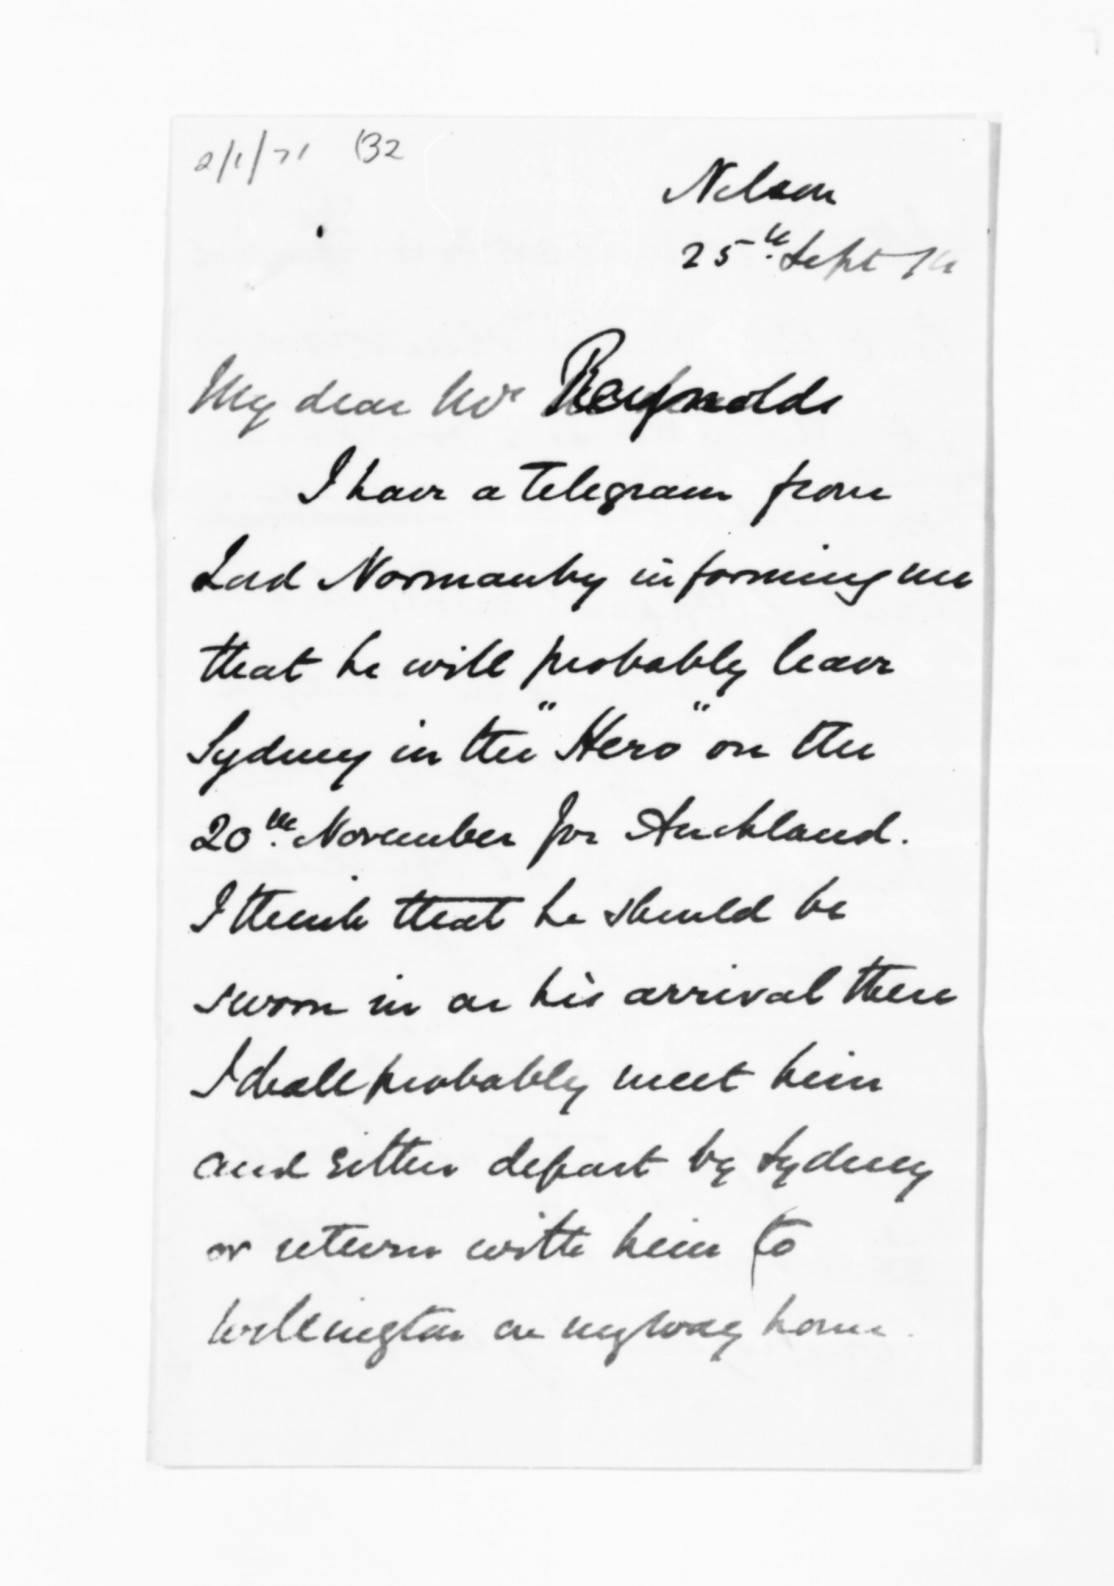 2/1/71 (32
Nelson
25th Sept 74
My dear Mr Reynolds
I have a telegram from
Lord Normanby informing me
that he will probably leave
Sydney in the "Hero" on the
20th November for Auckland.
I think that he should be
sworn in on his arrival there
I shall probably meet him
and either depart by Sydney
or return with him to
Wellington on my way home.